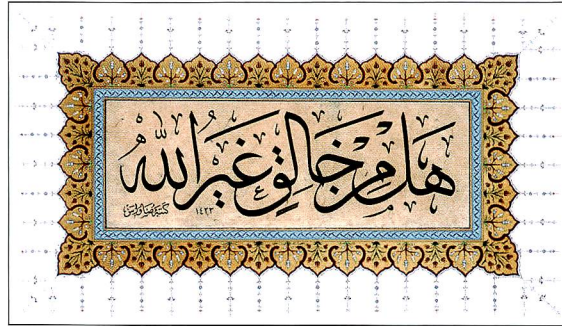 هَلْ مِنْ خَالِقٍ غَيْرُ اللّٰهِ
١٤٢٢